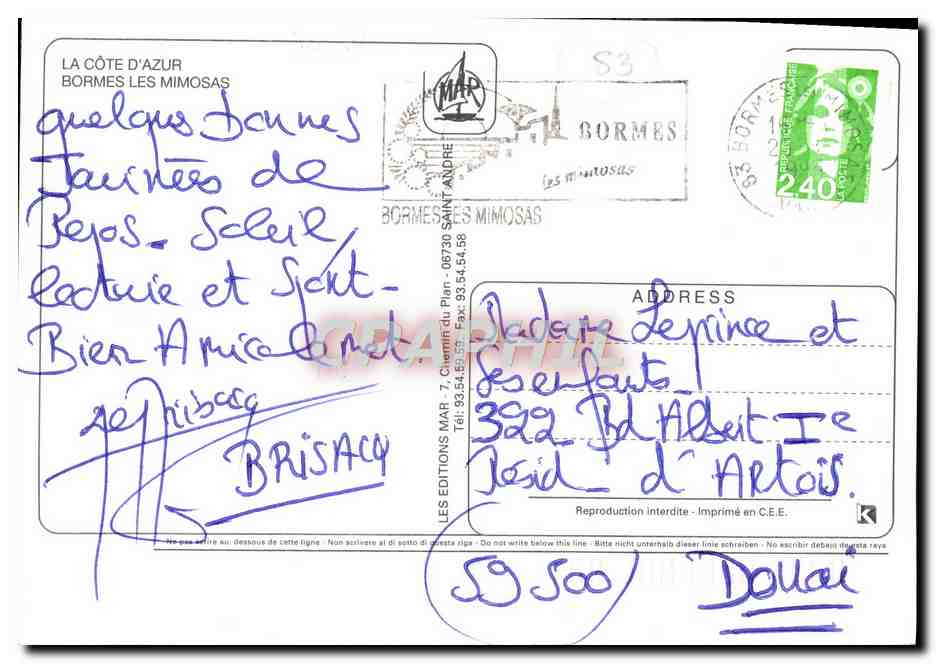 LA CÔTE D'AZUR
BORMES LES MIMOSAS
Quelques bonnes
Journées de
Repos - Soleil,
lecture et sport -
Bien Amicalement.
BRISACQ
MAR
83
BORMES
les mimosas
BORMES LES MIMOSAS
83 BORMES LES MIMOSAS
RÉPUBLIQUE FRANÇAISE
2,40
LA POSTE
LES EDITIONS MAR - 7, Chemin du Plan - 06730 SAINT ANDRÉ
Tél: 93.54.59.59. Fax: 93.54.54.58
ADDRESS
Madame Leprince et
Ses enfants
392 Bd Albert Ie
Résid - d'Artois.
Reproduction interdite - Imprimé en C.E.E.
K
Ne pas écrire au. dessous de cette ligne - Non scrivere al di sotto di questa riga - Do not write below this line - Bitte nicht unterhalb dieser linie schreiben - No escribir debajo de esta raya
59500
Douai